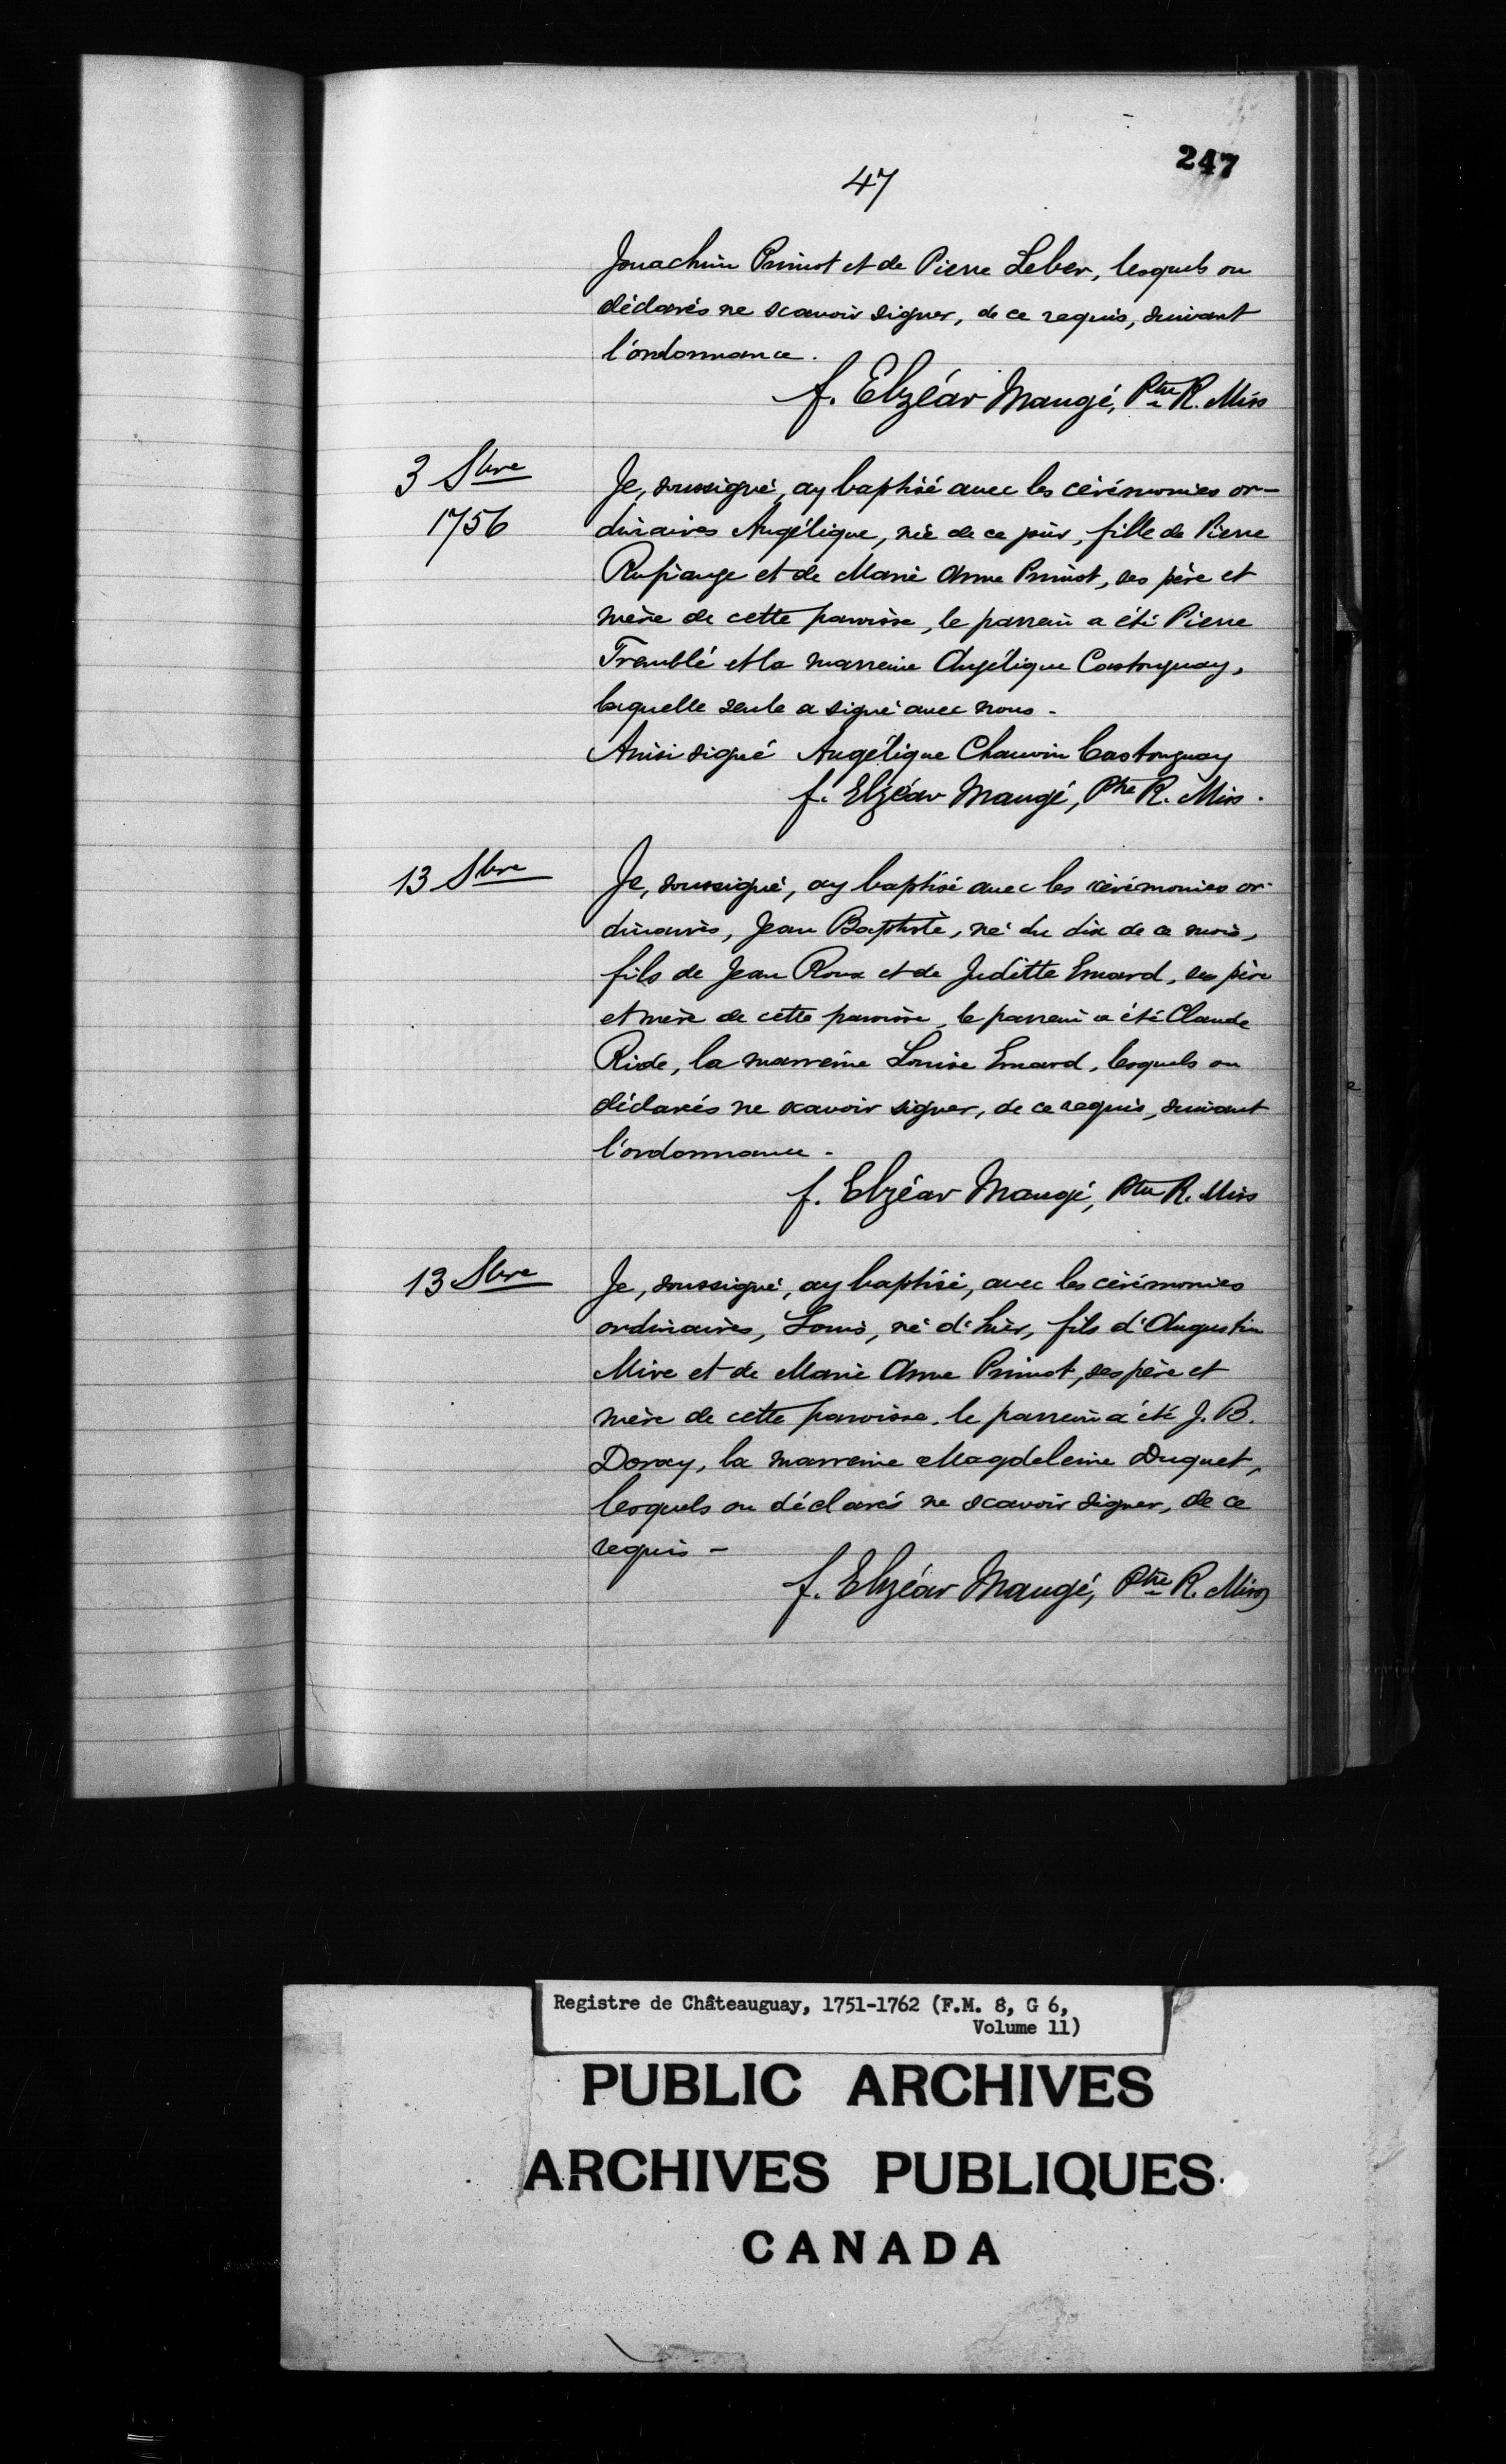 247
47
Jouachim Primot et de Pierre Leber, lesquels on
déclarés ne scavoir signer, de ce requis, suivant
l'ordonnance.
f. Elzéar Maugé, Ptre R. Miss
3 Sbre
1756
Je, soussigné, ay baptisé avec les cérémonies or-
dinaires Angélique, née de ce jour, fille de Pierre
Rufiange et de Marie Anne Primot, ses père et
mère de cette paroisse, le parrain a été Pierre
Tremblé et la marreine Angélique Castonguay,
laquelle seule a signé avec nous.
Ainsi signé Angélique Chauvin Castonguay
f. Elzéar Maugé, Ptre R. Miss.
13 Sbre
Je, soussigné, ay baptisé avec les cérémonies or-
dinaires, Jean Baptiste, né du dix de ce mois,
fils de Jean Roux et de Juditte Emard, ses père
et mère de cette paroisse, le parrein a été Claude
Ride, la marreine Louise Emard, lesquels on
déclarés ne scavoir signer, de ce requis, suivant
l'ordonnance.
f. Elzéar Maugé, Ptre R. Miss
13 Sbre
Je, soussigné, ay baptisé, avec les cérémonies
ordinaires, Louis, né d'hier, fils d'Augustin
Mire et de Marie Anne Primot, ses père et
mère de cette paroisse, le parrein a été J. B.
Doray, la marreine Magdeleine Duquet,
lesquels on déclarés ne scavoir signer, de ce
requis -
f. Elzéar Maugé, Ptre R. Miss
Registre de Châteauguay, 1751-1762 (F.M. 8, G 6,
Volume 11)
PUBLIC ARCHIVES
ARCHIVES PUBLIQUES
CANADA